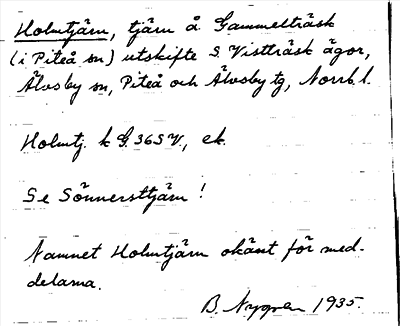 Holmtjärn, tjärn å Gammelträsk
(i Piteå sn) utskifte S. Vistträsk ägor,
Älvsby sn, Piteå och Älvsby tg, Norrb. l.
Holmtj. k G. 36 S V., ek.
Se Sönnersttjärn!
Namnet Holmtjärn okänt för med-
delarna.
B. Nygren 1935.